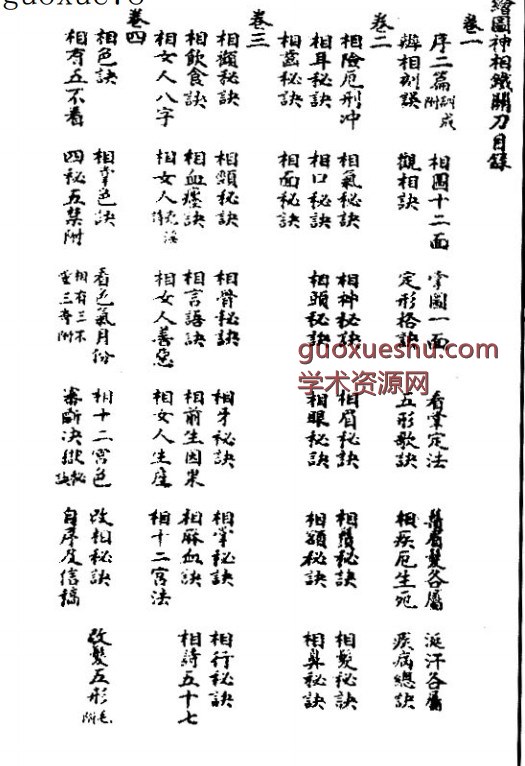 guoxue
繪圖神相鐵關刀目錄
卷一
序二篇 附 相圖十二面 掌圖一面 看掌定法 眉髮各屬 涎汗各屬
辨相刻誤 觀相訣 定形格訣 五形歌訣 相疾厄生死 疾病總訣
卷二
相險厄刑冲 相氣秘訣 相神秘訣 相眉秘訣 相鬚秘訣 相髮秘訣
相耳秘訣 相口秘訣 相頭秘訣 相眼秘訣 相額秘訣 相鼻秘訣
相秘訣 相面秘訣
卷三
相顴秘訣 相頸秘訣 相骨秘訣 相牙秘訣 相掌秘訣 相行秘訣
相飲食訣 相血訣 相言語訣 相前生因果 相麻血訣 相詩五十七
相女人八字 相女人 相女人善惡 相女人生産 相十二宮法
卷四
相色訣 相掌色訣 看色氣月份 相十二宮色 改相秘訣 改髮五形毛附
相有五不看 四秘五禁附 相有三不 三奇附 審斷決獄秘訣 自序及信稿
guoxueshu.com
学术资源网